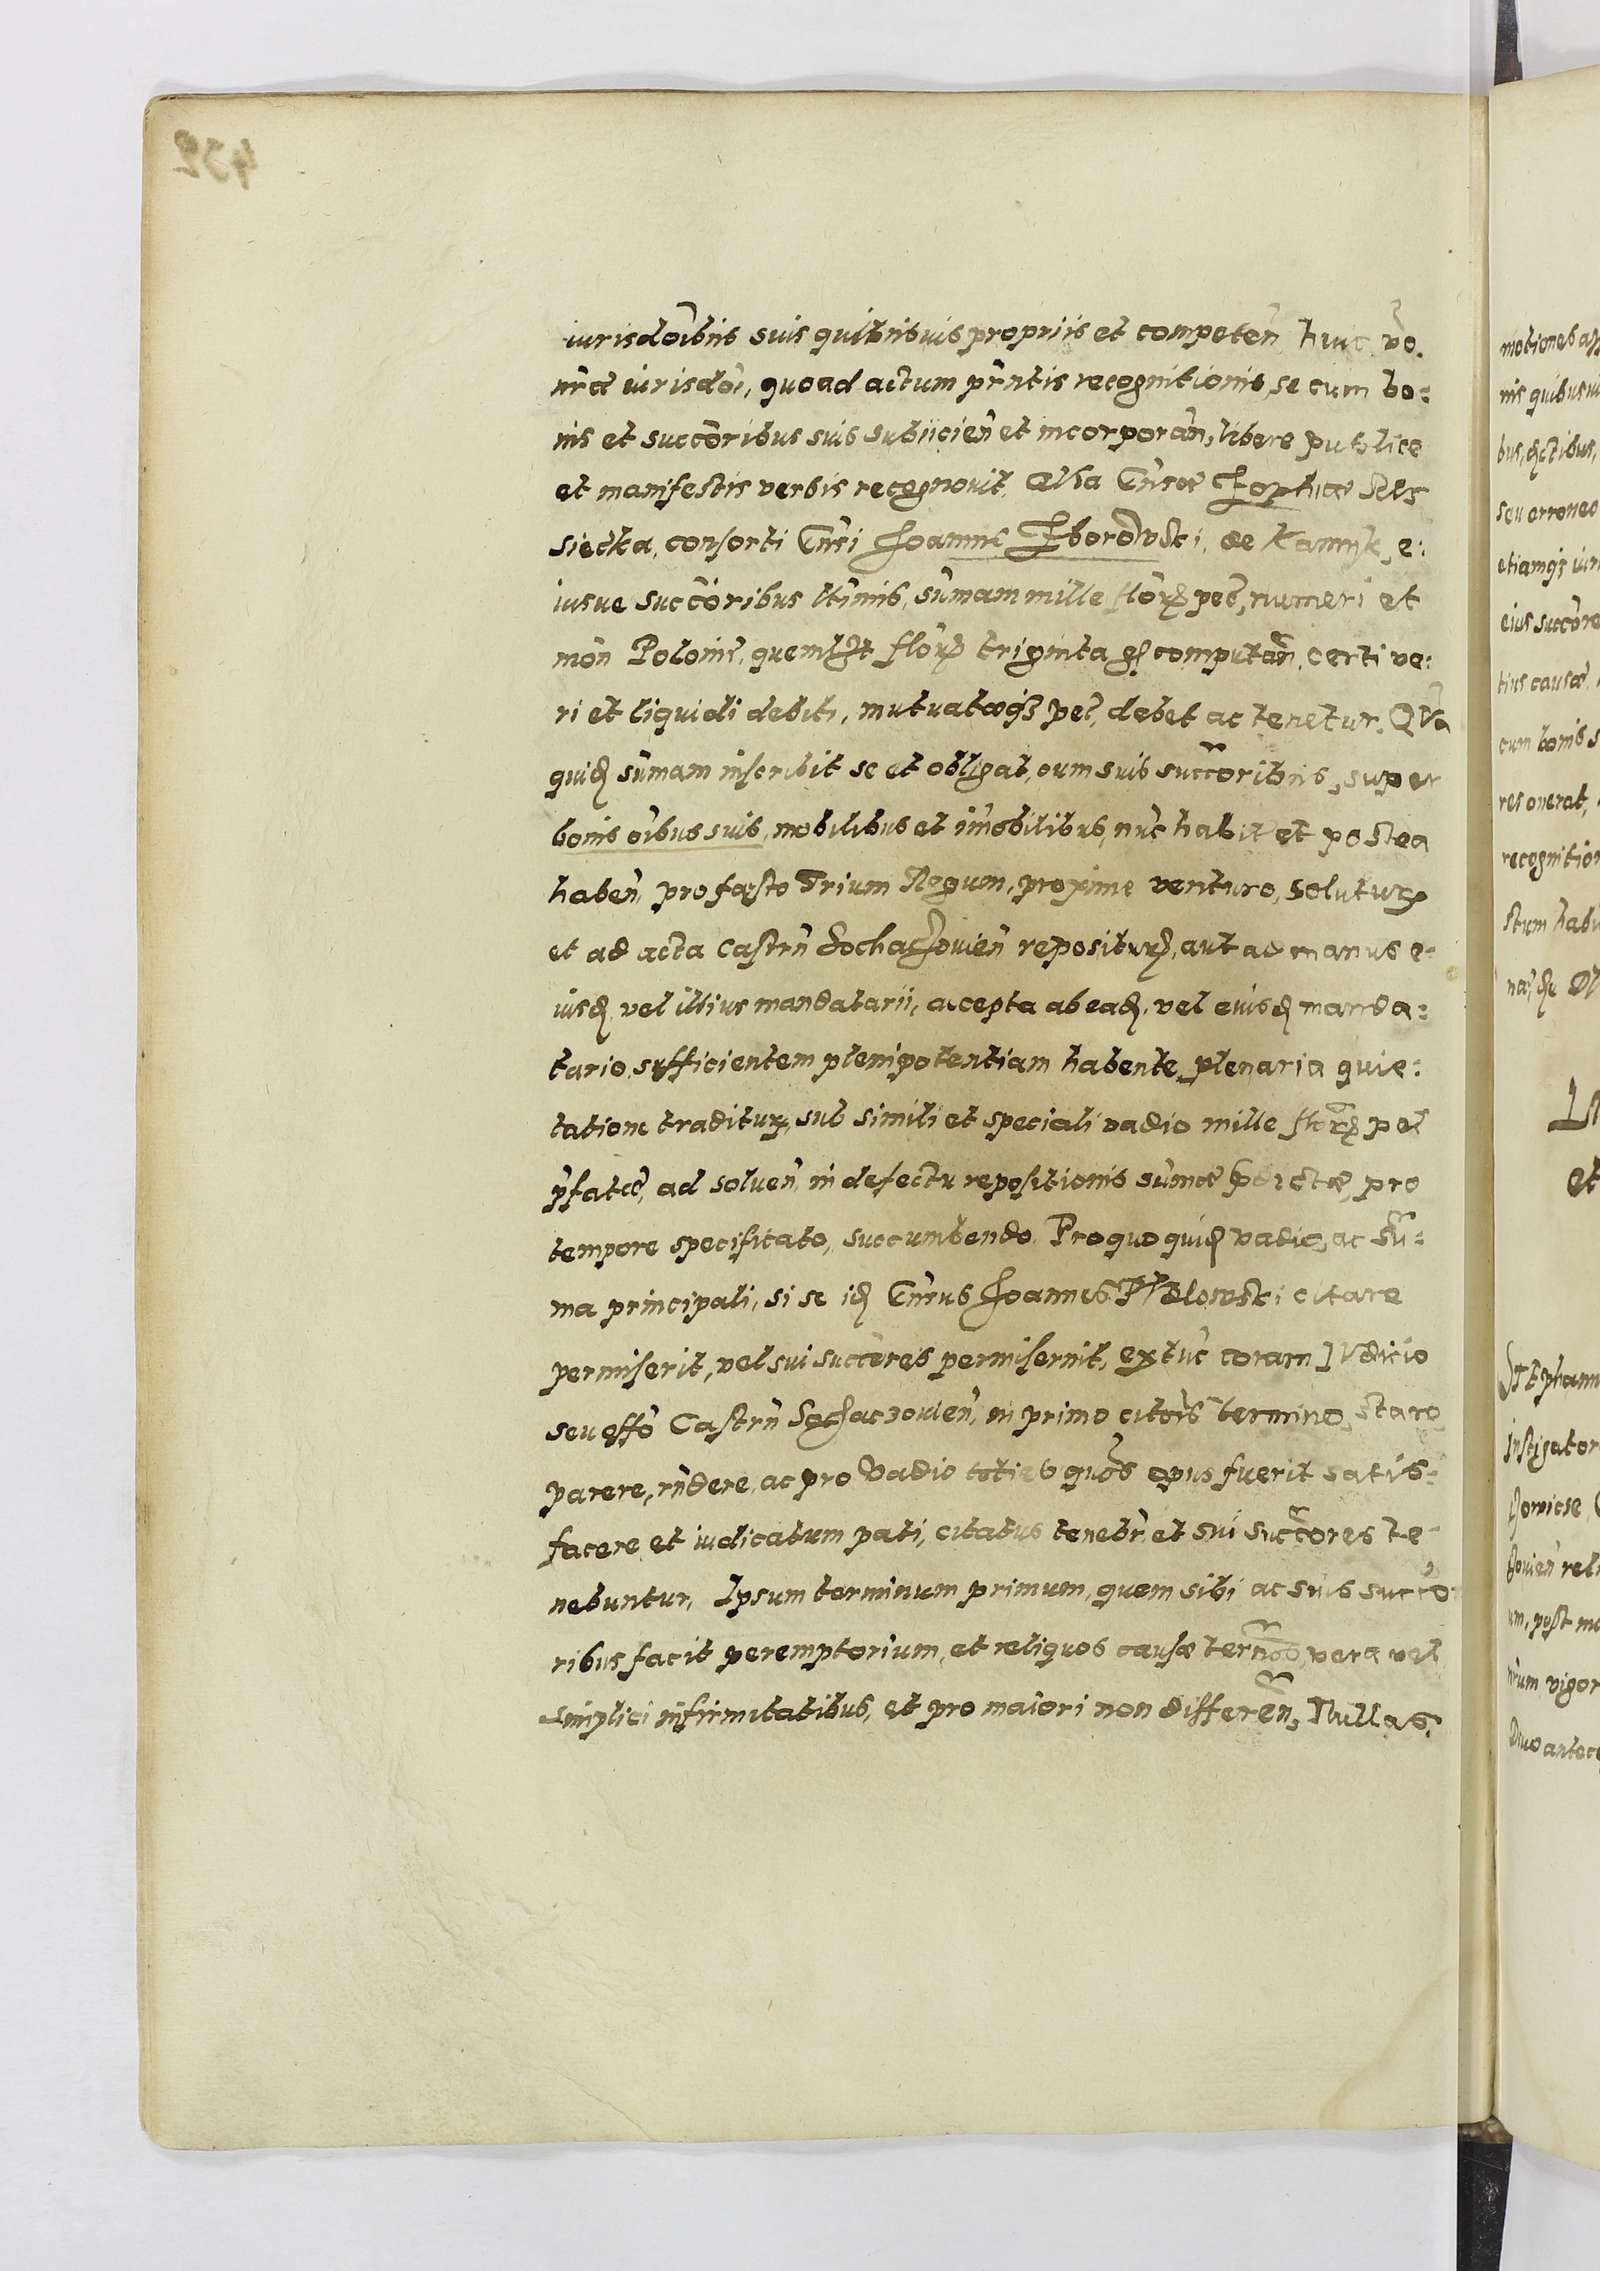 iurisdoîbus suis quibusvis propriis et competeñ huic vo.
nr̃æ iurisdoi, quoad actum pñtis recognitionis, se cum bo:
nis et succõribus suis subiicieñ et incorporañ, libere publice
et manifestis verbis recognovit, Gñsæ Zophiæ
siecka, consorti Gñsi Joannis Zborowski, de Kamyk, e:
iusve succõribus ltimis, sumam mille flor pec, numeri et
moñ Poloniz, quemlbt flor triginta gs computañ, certi ve:
ri et liquidi debiti, mutuatæqz pec, debet ac tenetur. Qua
quid sumam inscribit se et obligat, cum suis succoribus, super
bonis oîbus suis, mobilibus et imobilibus, nuc habit et postea
habeñ, pro fæsto Trium Regum, proxime venturo, solutur
et ad acta Castrñ Sochaczovieñ repositur, aut ad manus e:
iusd, vel illius mandatarii, accepta ab ead, vel eiusd manda:
tario, sufficientem plenipotentiam habente, plenaria quie:
tatione traditur, sub simili et speciali vadio mille flor pec
pfatæ, ad solueñ, in defectu repositionis sumæ pdictæ, pro
tempore specificato, succumbendo. Pro quo quid vadio, ac su:
ma principali, si se id Gñsus Joannes citare
permiserit, vel sui succores permiserint, extuc coram Iudicio
seu offo Castrñ Sochaczovieñ, in primo citõis termino, stare,
parere, rñdere, ac pro Vadio toties quots opus fuerit satis:
facere et iudicatum pati, citatus tenebr et sui succores te:
nebuntur, Ipsum terminum primum, quem sibi ac suis succo:
ribus facit peremptorium, et reliquos causæ termos, vera vel
simplici infirmitatibus, et pro maiori non differeñ, Nullas
432